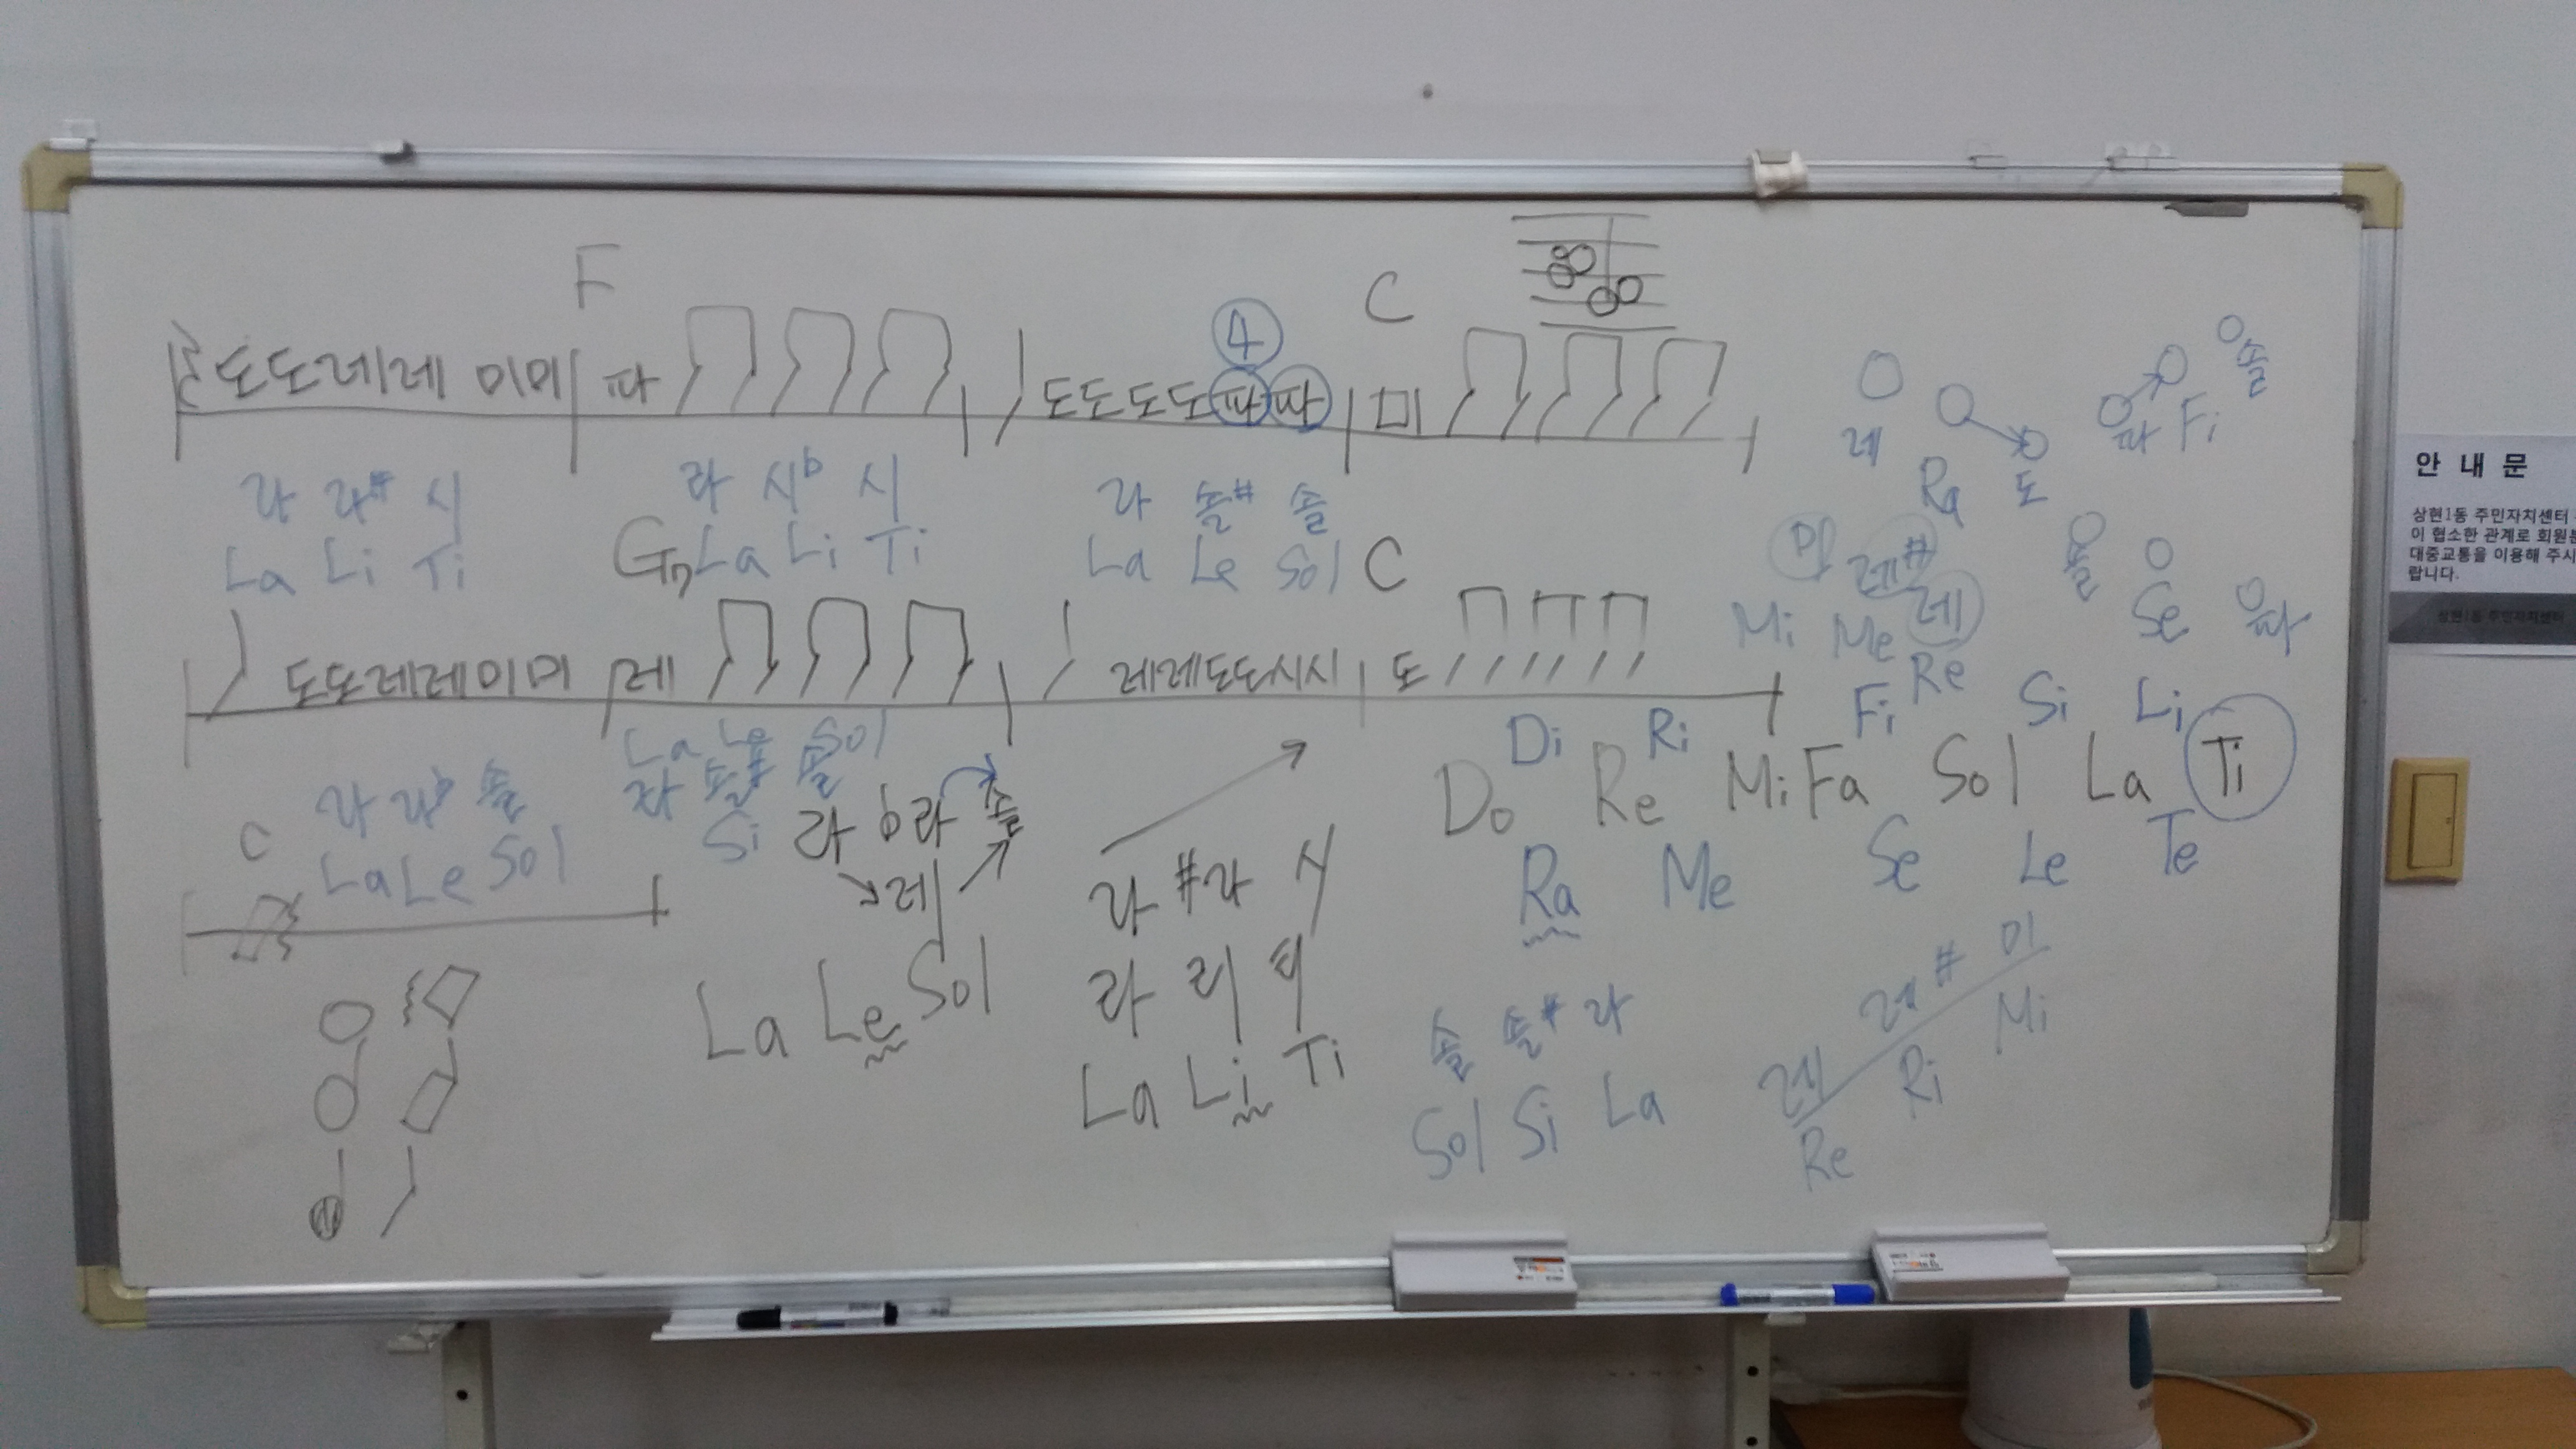 F
④
C
도도레레 미미 파
도도도도파파 미
라 라# 시
라 시b 시
라 솔# 솔
La Li Ti
G7 La Li Ti
La Le Sol C
도도레레미미 레
레레도도시시 도
레 Ra 도
파 Fi 솔
미 레# 레
Mi Me Re
솔 Se 파
La Le Sol
라 솔# 솔
Si
라 라b 솔
C La Le Sol
라 b라 솔
레
La Le Sol
라 #라 시
라 리 티
La Li Ti
Di Ri Fi Si Li
Do Re Mi Fa Sol La Ti
Ra Me Se Le Te
솔 솔# 라
Sol Si La
레 레# 미
Re Ri Mi
안 내 문
상현1동 주민자치센터
이 협소한 관계로 회원분
대중교통을 이용해 주시
랍니다.
상현1동 주민자치센터